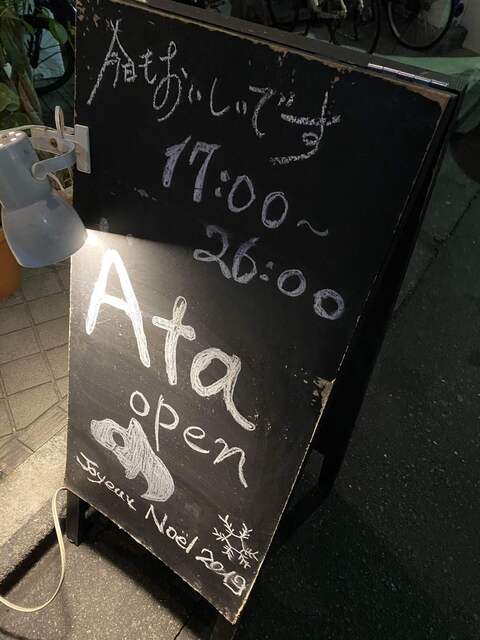 今日もおいしいです
17:00~
26:00
Ata
open
Joyeux Noël 2019